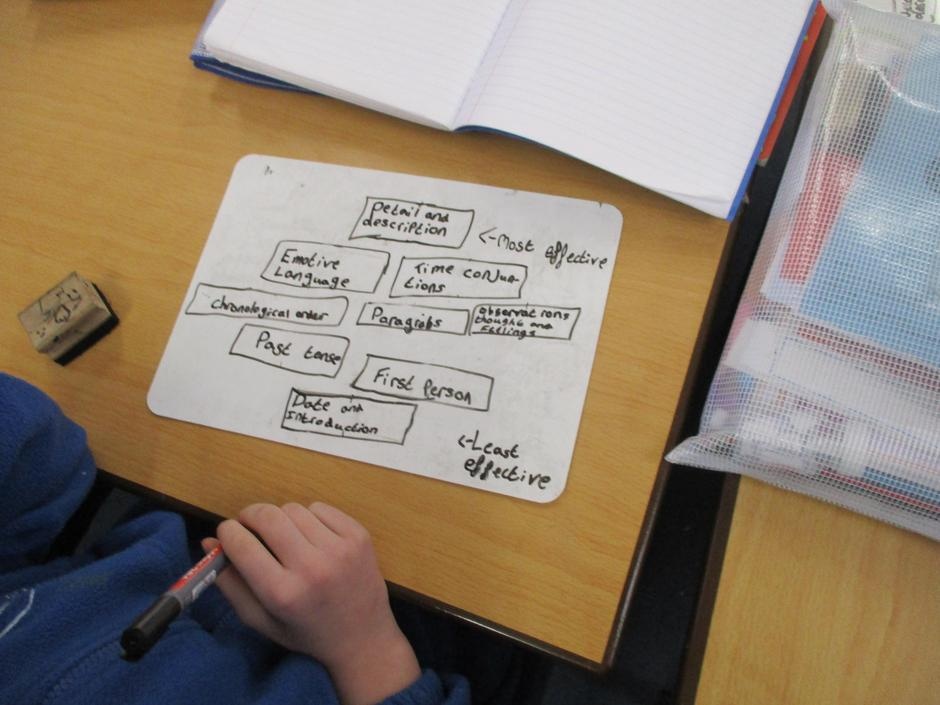 Detail and
description
<-Most effective
Emotive
Language
Time conjun-
tions
chronological order
Paragrahs
observations
thoughts and
feelings
Past tense
First Person
Date and
introduction
<-Least
effective